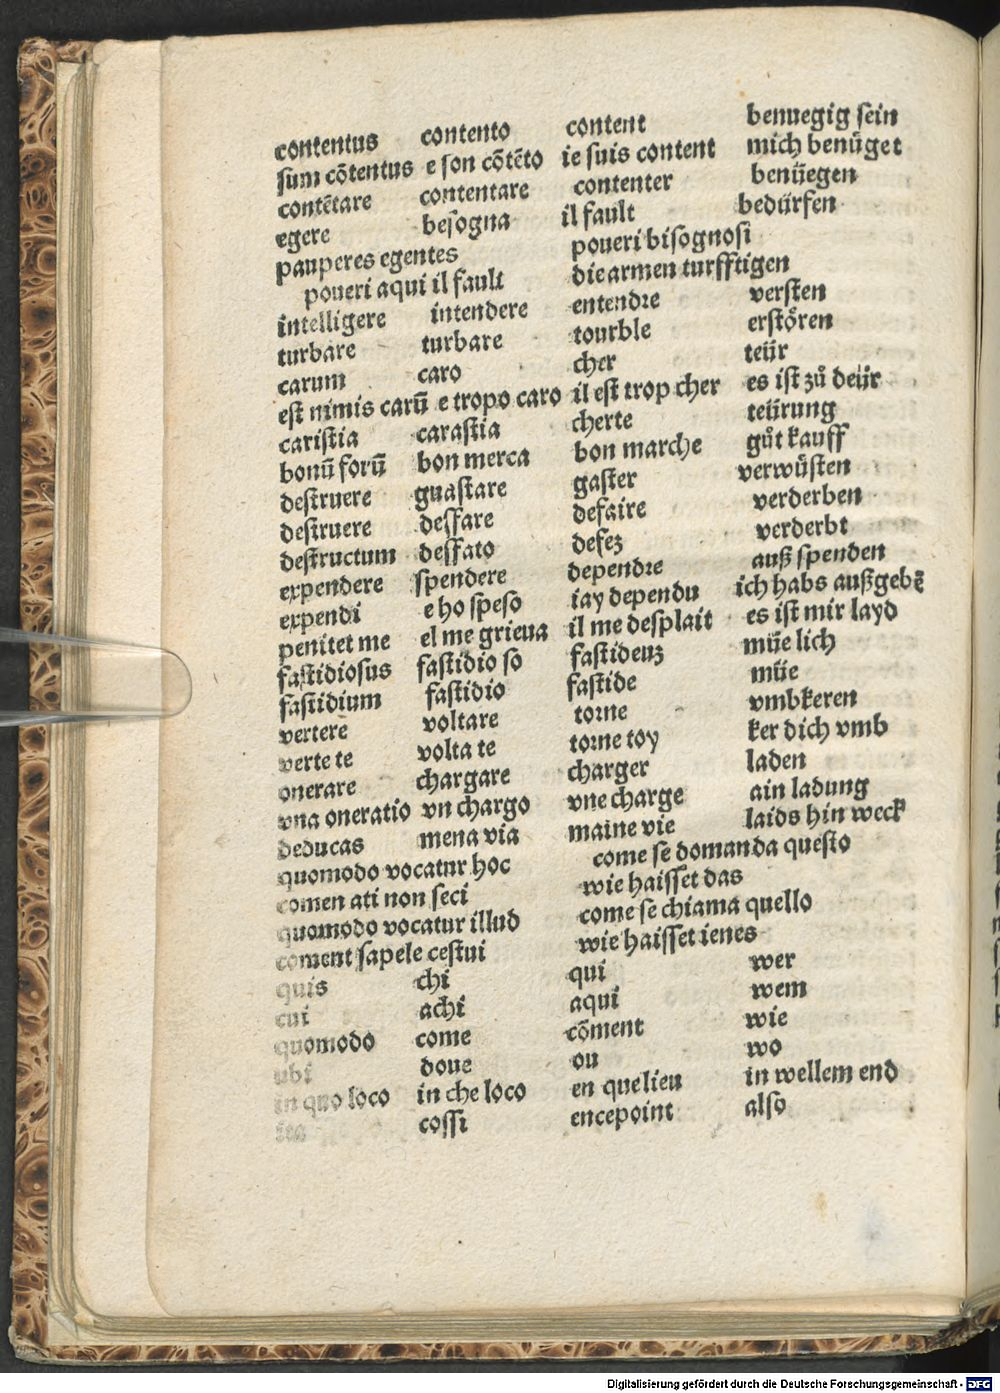 contentus contento content benuegig sein
sum cõtentus e son cõtẽto ie suis content mich benüget
contẽtare contentare contenter benüegen
egere besogna il fault bedürfen
pauperes egentes poueri bisognosi
poueri aqui il fault die armen turfftigen
intelligere intendere entendre versten
turbare turbare tourble erstören
carum caro cher teür
est nimis carũ e tropo caro il est trop cher es ist zů deür
caristia carastia cherte teürung
bonũ forũ bon merca bon marche gůt kauff
destruere guastare gaster verwüsten
destruere desfare defaire verderben
destructum desfato defez verderbt
expendere spendere dependre auß spenden
expendi e ho speso iay dependu ich habs außgebẽ
penitet me el me grieua il me desplait es ist mir layd
fastidiosus fastidio so fastideuz müe lich
fastidium fastidio fastide müe
vertere voltare torne vmbkeren
verte te volta te torne toy ker dich vmb
onerare chargare charger laden
vna oneratio vn chargo vne charge ain ladung
deducas mena via maine vie laids hin weck
quomodo vocatur hoc come se domanda questo
comen ati non seci wie haisset das
quomodo vocatur illud come se chiama quello
coment sapele cestui wie haisset ienes
quis chi qui wer
cui achi aqui wem
quomodo come cõment wie
ubi doue ou wo
in quo loco in che loco en que lieu in wellem end
cossi encepoint also
Digitalisierung gefördert durch die Deutsche Forschungsgemeinschaft - DFG